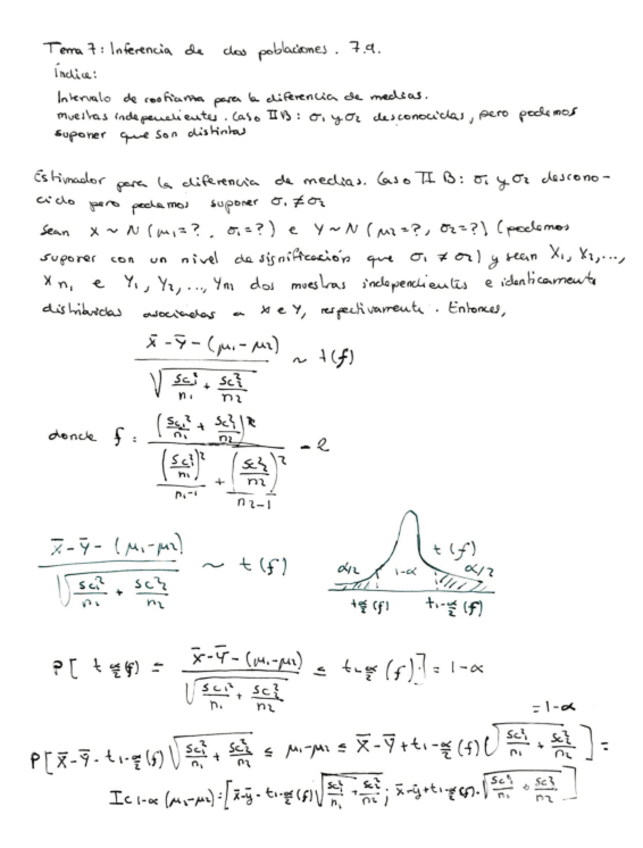 Tema 7: Inferencia de dos poblaciones. 7.9.
Índice:
Intervalo de confianza para la diferencia de medias.
muestras independientes. Caso II B: σ₁ y σ₂ desconocidas, pero podemos
suponer que son distintas
Estimador para la diferencia de medias. Caso II B: σ₁ y σ₂ descono-
cido pero podemos suponer σ₁ ≠ σ₂
Sean X ~ N (μ₁=?, σ₁=?) e Y ~ N (μ₂=?, σ₂=?) (podemos
suponer con un nivel de significación que σ₁ ≠ σ₂) y sean X₁, X₂, ...,
Xn₁ e Y₁, Y₂, ..., Yn₂ dos muestras independientes e identicamente
distribuidas asociadas a X e Y, respectivamente. Entonces,
X̄ - Ȳ - (μ₁ - μ₂) / √(Sc₁²/n₁ + Sc₂²/n₂) ~ t(f)
donde f = (Sc₁²/n₁ + Sc₂²/n₂)² / ((Sc₁²/n₁)²/(n₁-1) + (Sc₂²/n₂)²/(n₂-1)) - 2
X̄ - Ȳ - (μ₁ - μ₂) / √(Sc₁²/n₁ + Sc₂²/n₂) ~ t(f)
t(f)
α/2 1-α α/2
t α/2 (f) t 1-α/2 (f)
P[ t α/2 (f) = X̄ - Ȳ - (μ₁ - μ₂) / √(Sc₁²/n₁ + Sc₂²/n₂) ≤ t 1-α/2 (f) ] = 1-α
= 1-α
P[ X̄ - Ȳ - t 1-α/2 (f) √(Sc₁²/n₁ + Sc₂²/n₂) ≤ μ₁ - μ₂ ≤ X̄ - Ȳ + t 1-α/2 (f) √(Sc₁²/n₁ + Sc₂²/n₂) ] =
Ic 1-α (μ₁ - μ₂) = [ x̄ - ȳ - t 1-α/2 (f) √(Sc₁²/n₁ + Sc₂²/n₂) ; x̄ - ȳ + t 1-α/2 (f) · √(Sc₁²/n₁ + Sc₂²/n₂) ]